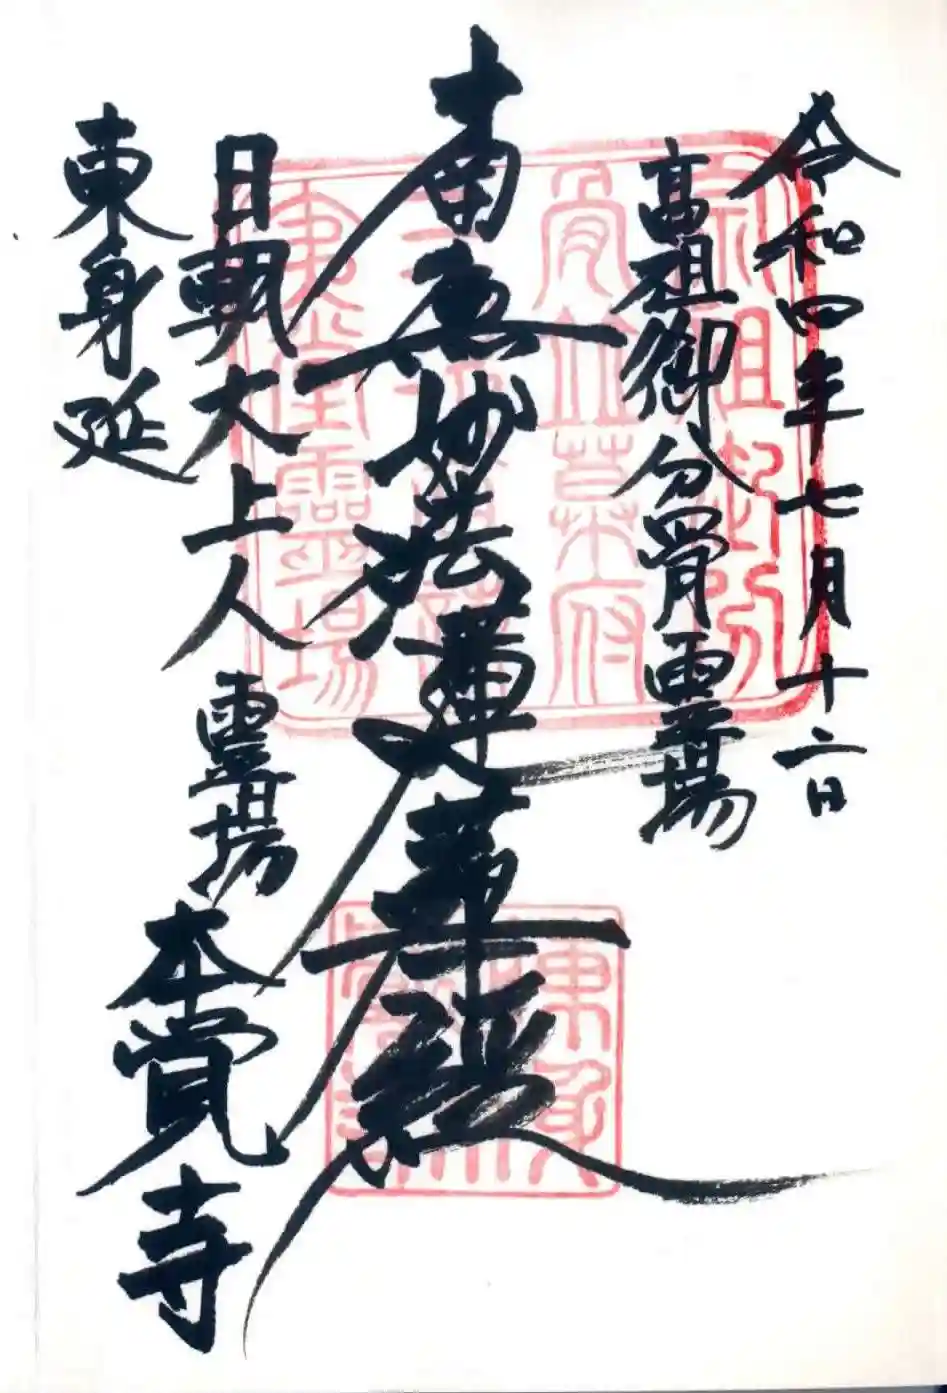 令和四年七月十二日
高祖御分骨霊場
南無妙法蓮華経
日朝大上人霊場
東身延
本覚寺